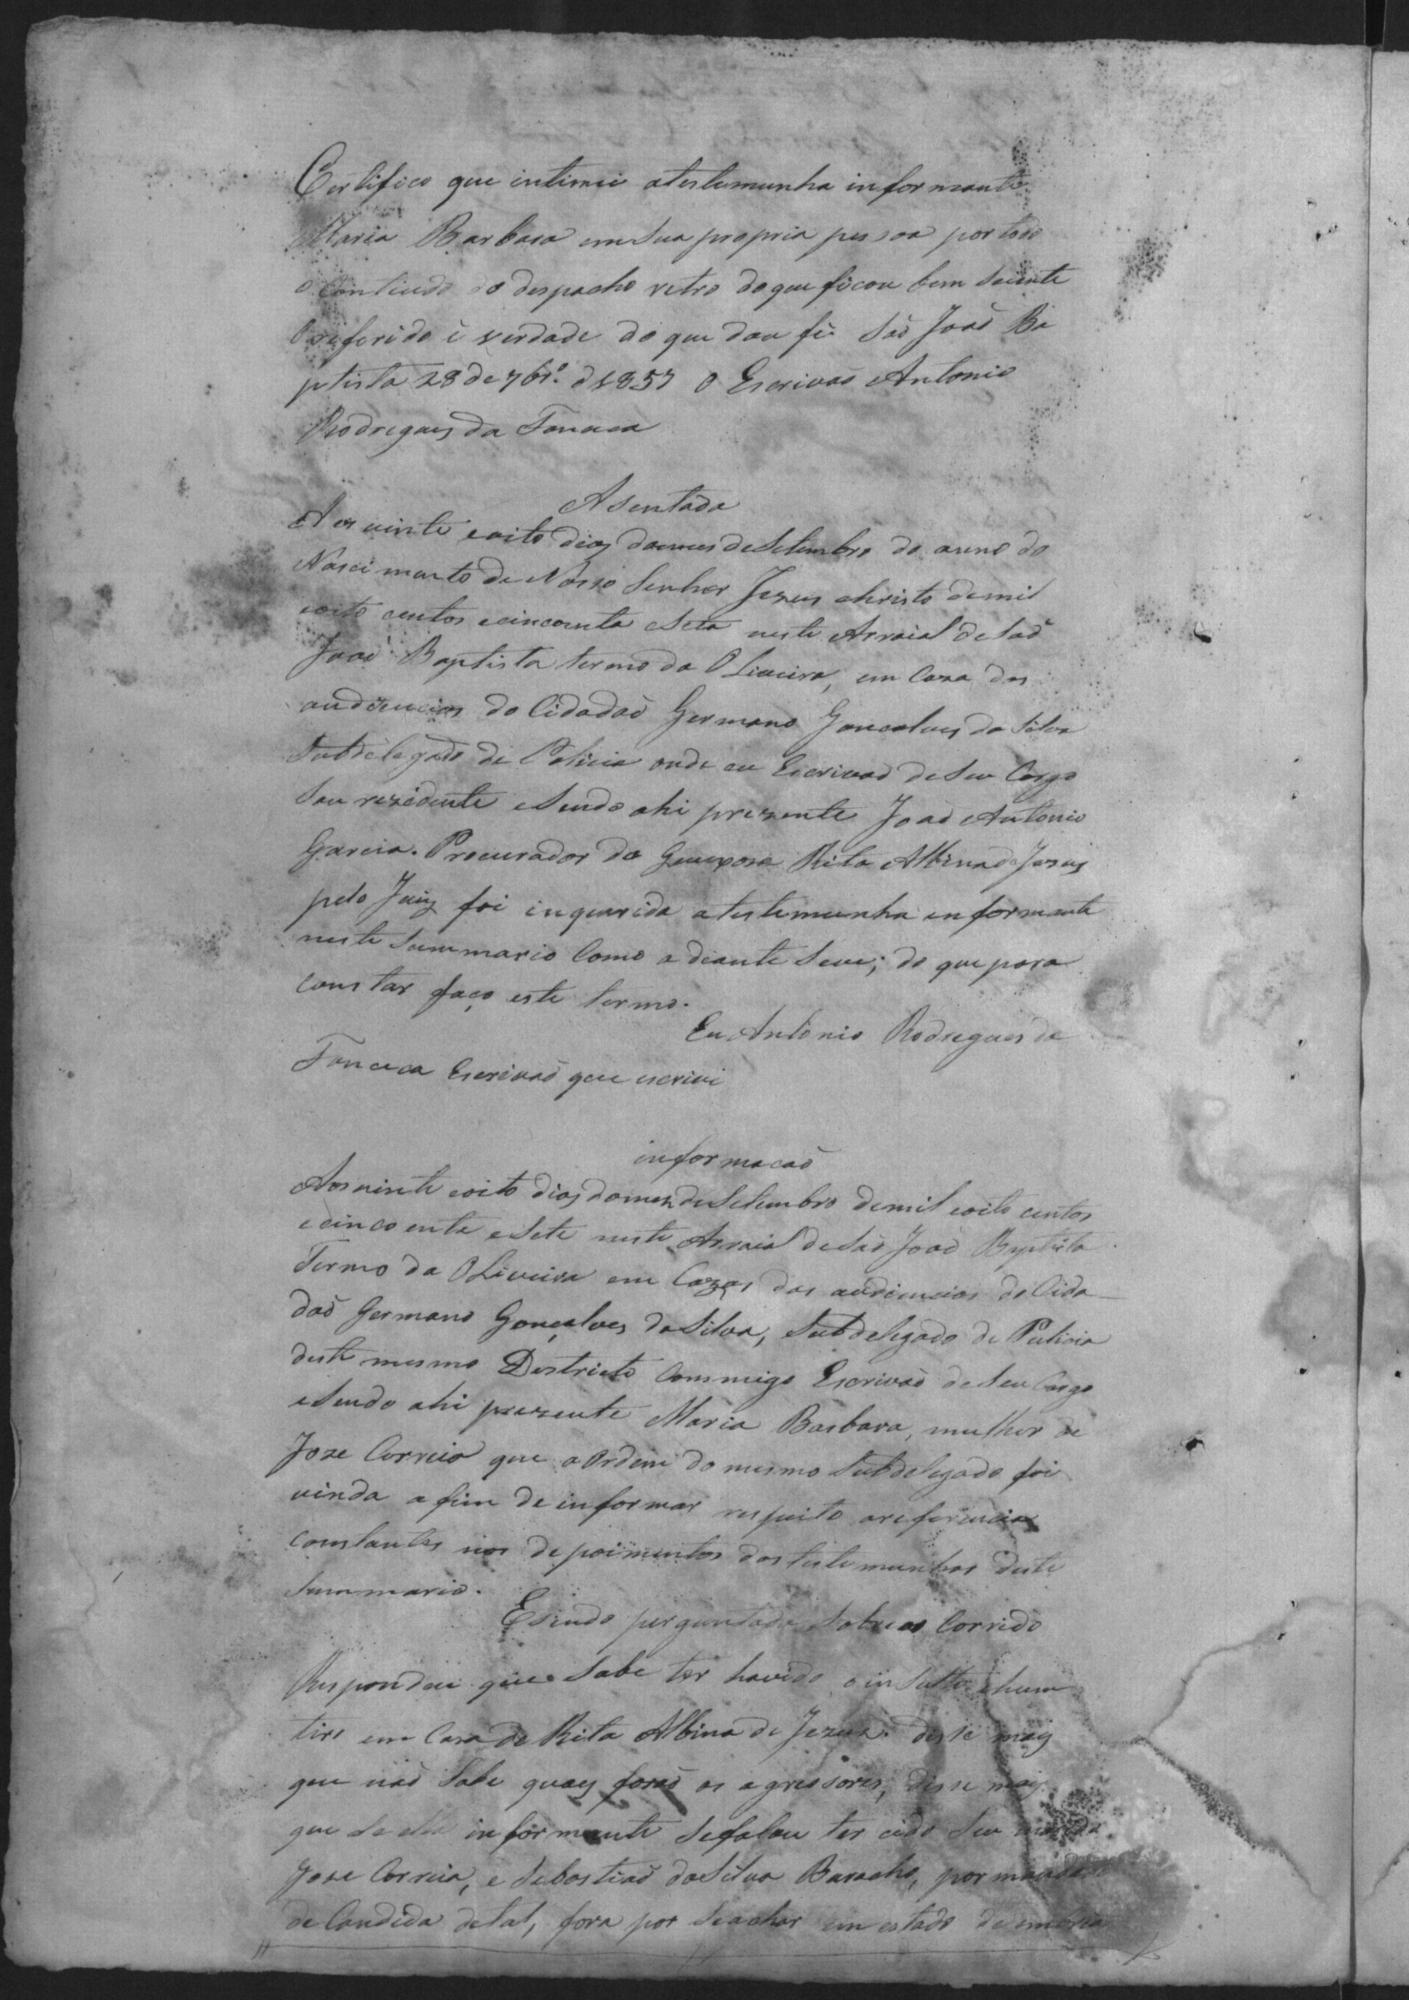 Certifico que intimei atestemunha informante
Maria Barbara em Sua propria pessoa por todo
o Contiudo do despacho retro doque ficou bem Sciente
Oreferido è verdade do que dou fé. Saõ Joaõ Ba
ptista 28 de 7br.º d 1857 O Escrivaõ Antonio
Rodrigues da Fonceca
Asentada
Aos vinte eoito dias domes deSetembro do anno do
Nascimento de Nosso Senhor Jezus Christo demil
eoito centos ecincoenta eSete neste Arraial de Saõ
Joaõ Baptista termo da OLiveira, em Caza das
audiencias do Cidadaõ Germano Gonsalves da Silva
Subdelegado de Policia onde eu Escrivaõ de Seu Cargo
Sou rezidente eSendo ahi prezente Joaõ Antonio
Garcia. Procurador da Queixosa Rita Albina de Jezus
pelo Juiz foi inquerida atestemunha enformante
neste Summario Como adiante Seve; do que para
Constar faço este termo.
Eu Antonio Rodrigues da
Fonceca Escrivaõ que escrivi
informacaõ
Aos vinte eoito dias domez deSetembro demil eoito centos
ecincoenta eSete neste Arraial de Saõ Joaõ Baptista
Termo da OLiveira em Cazas das audiencias do Cida
daõ Germano Gonçalves da Silva, Subdelegado de Policia
deste mesmo Destricto Commigo Escrivaõ de Seu Cargo
eSendo ahi prezente Maria Barbara, mulher de
Joze Correia que aOrdem do mesmo Subdelegado foi
vinda afim de informar respeito areferencias
Constantes nos depoimentos das testemunhas deste
Summario.
Esendo perguntada Sobre oo Corrido
Respondeu que Sabe ter havido o insulto ehum
tiro em Casa de Rita Albina de Jezus. disse mais
que naõ Sabe quaes foraõ os agressores, disse mais
que Se ella informante Sefalou ter cido Seu marido
Joze Correia, e Sebastiaõ da Silva Baracho, por mandado
de Candida deTal, fora por Seachar em estado de embria